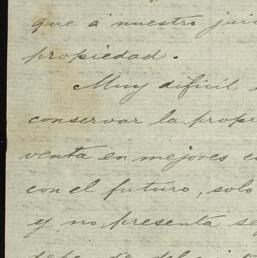 que á nuestro jui
propiedad.
Muy dificil
conservar la prope
venta en mejores
con el futuro, solo
y no presenta se